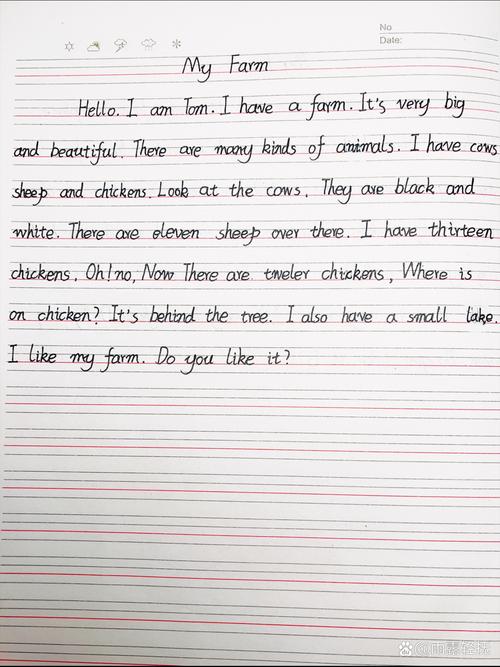 No
Date:
My Farm
Hello. I am Tom. I have a farm. It's very big
and beautiful. There are many kinds of animals. I have cows
sheep and chickens. Look at the cows. They are black and
white. There are eleven sheep over there. I have thirteen
chickens. Oh! no, Now There are tweler chickens, Where is
on chicken? It's behind the tree. I also have a small lake.
I like my farm. Do you like it?